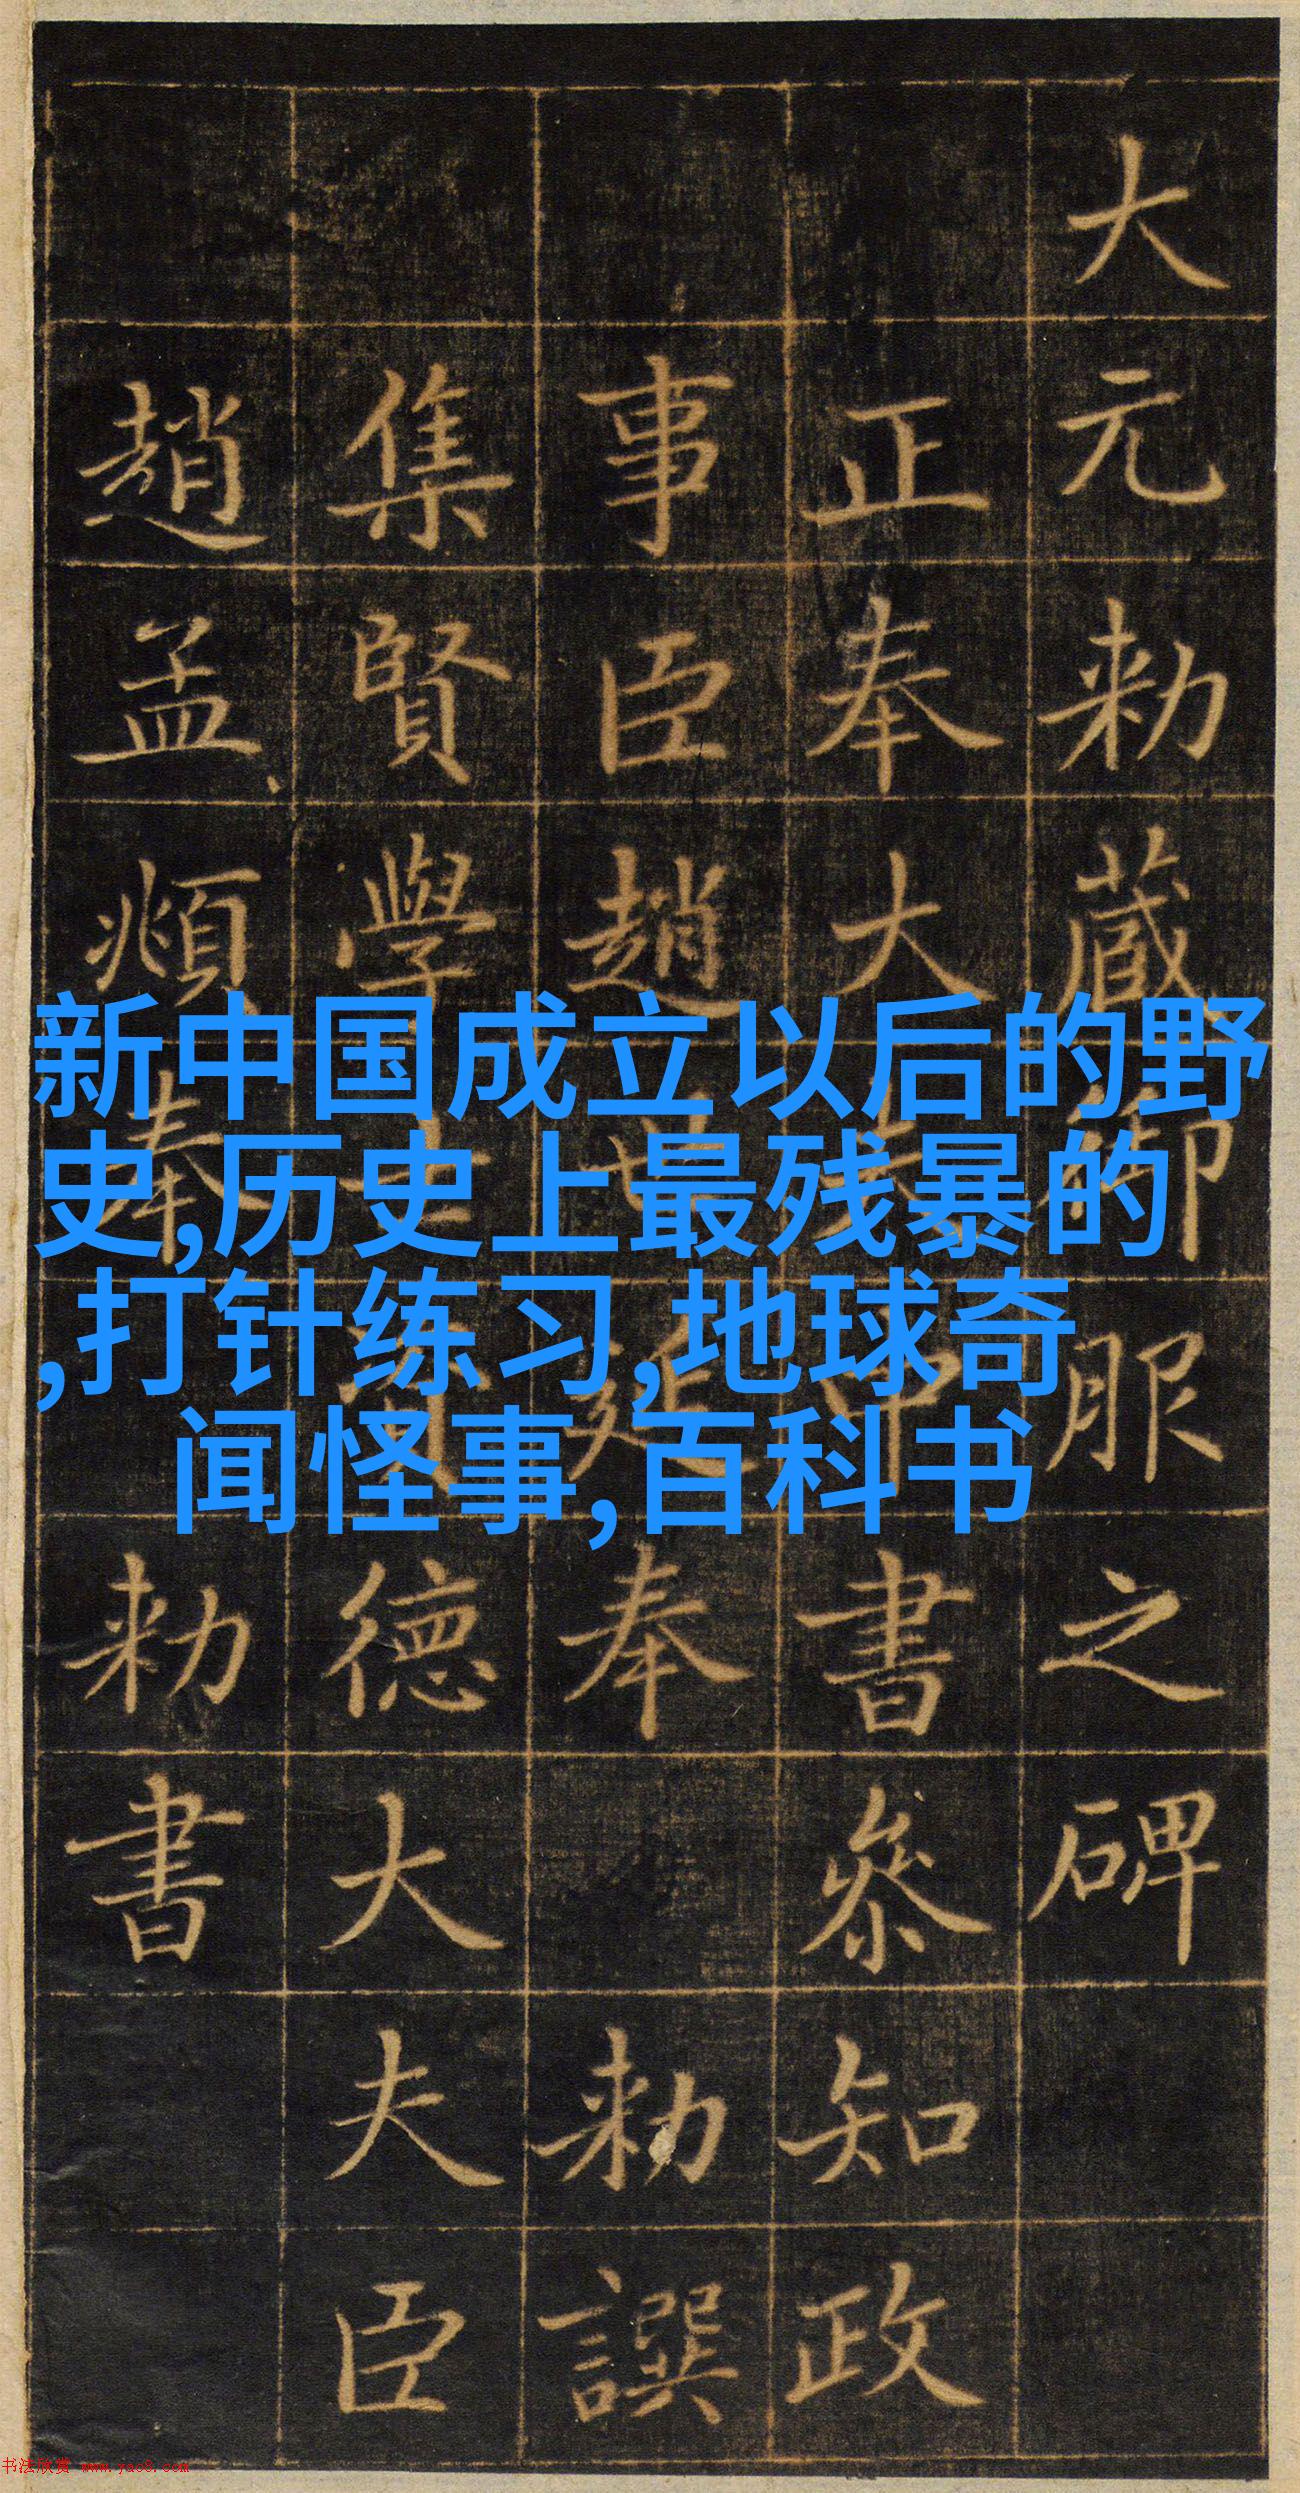 大元勑蔵御服之碑
正奉大夫中書參知政
事臣趙世延奉勑譔
集賢學士資德大夫臣
趙孟頫奉勑書
新中国成立以后的野
史,历史上最残暴的
,打针练习,地球奇
闻怪事,百科书
书法欣赏 www.yac8.com